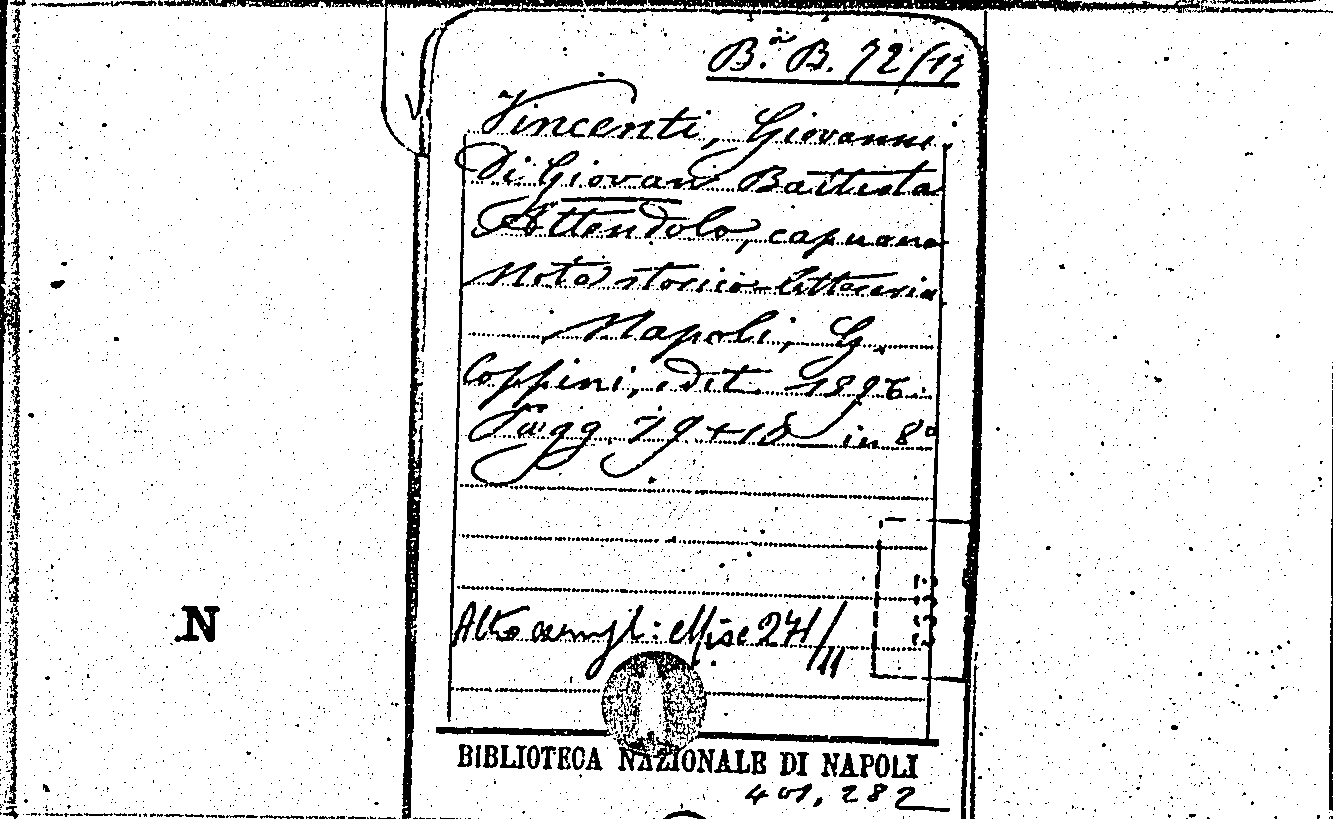 B.ª B. 72/13
Vincenti, Giovanni.
Di Giovan Battista
Attendolo, capuano
Nota storico-letteraria
Napoli, G.
Coppini, edit. 1896.
Pagg. 79+18 in 8°
Altro esempl: Misc 271/11
N
BIBLIOTECA NAZIONALE DI NAPOLI
401.282